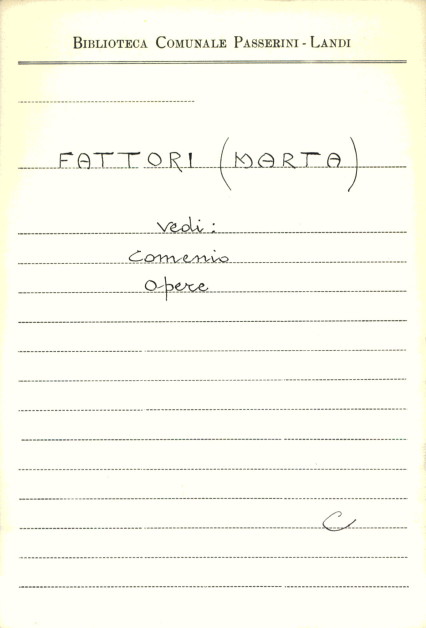 BIBLIOTECA COMUNALE PASSERINI - LANDI
FATTORI (MARTA)
vedi:
Comenio
Opere
C